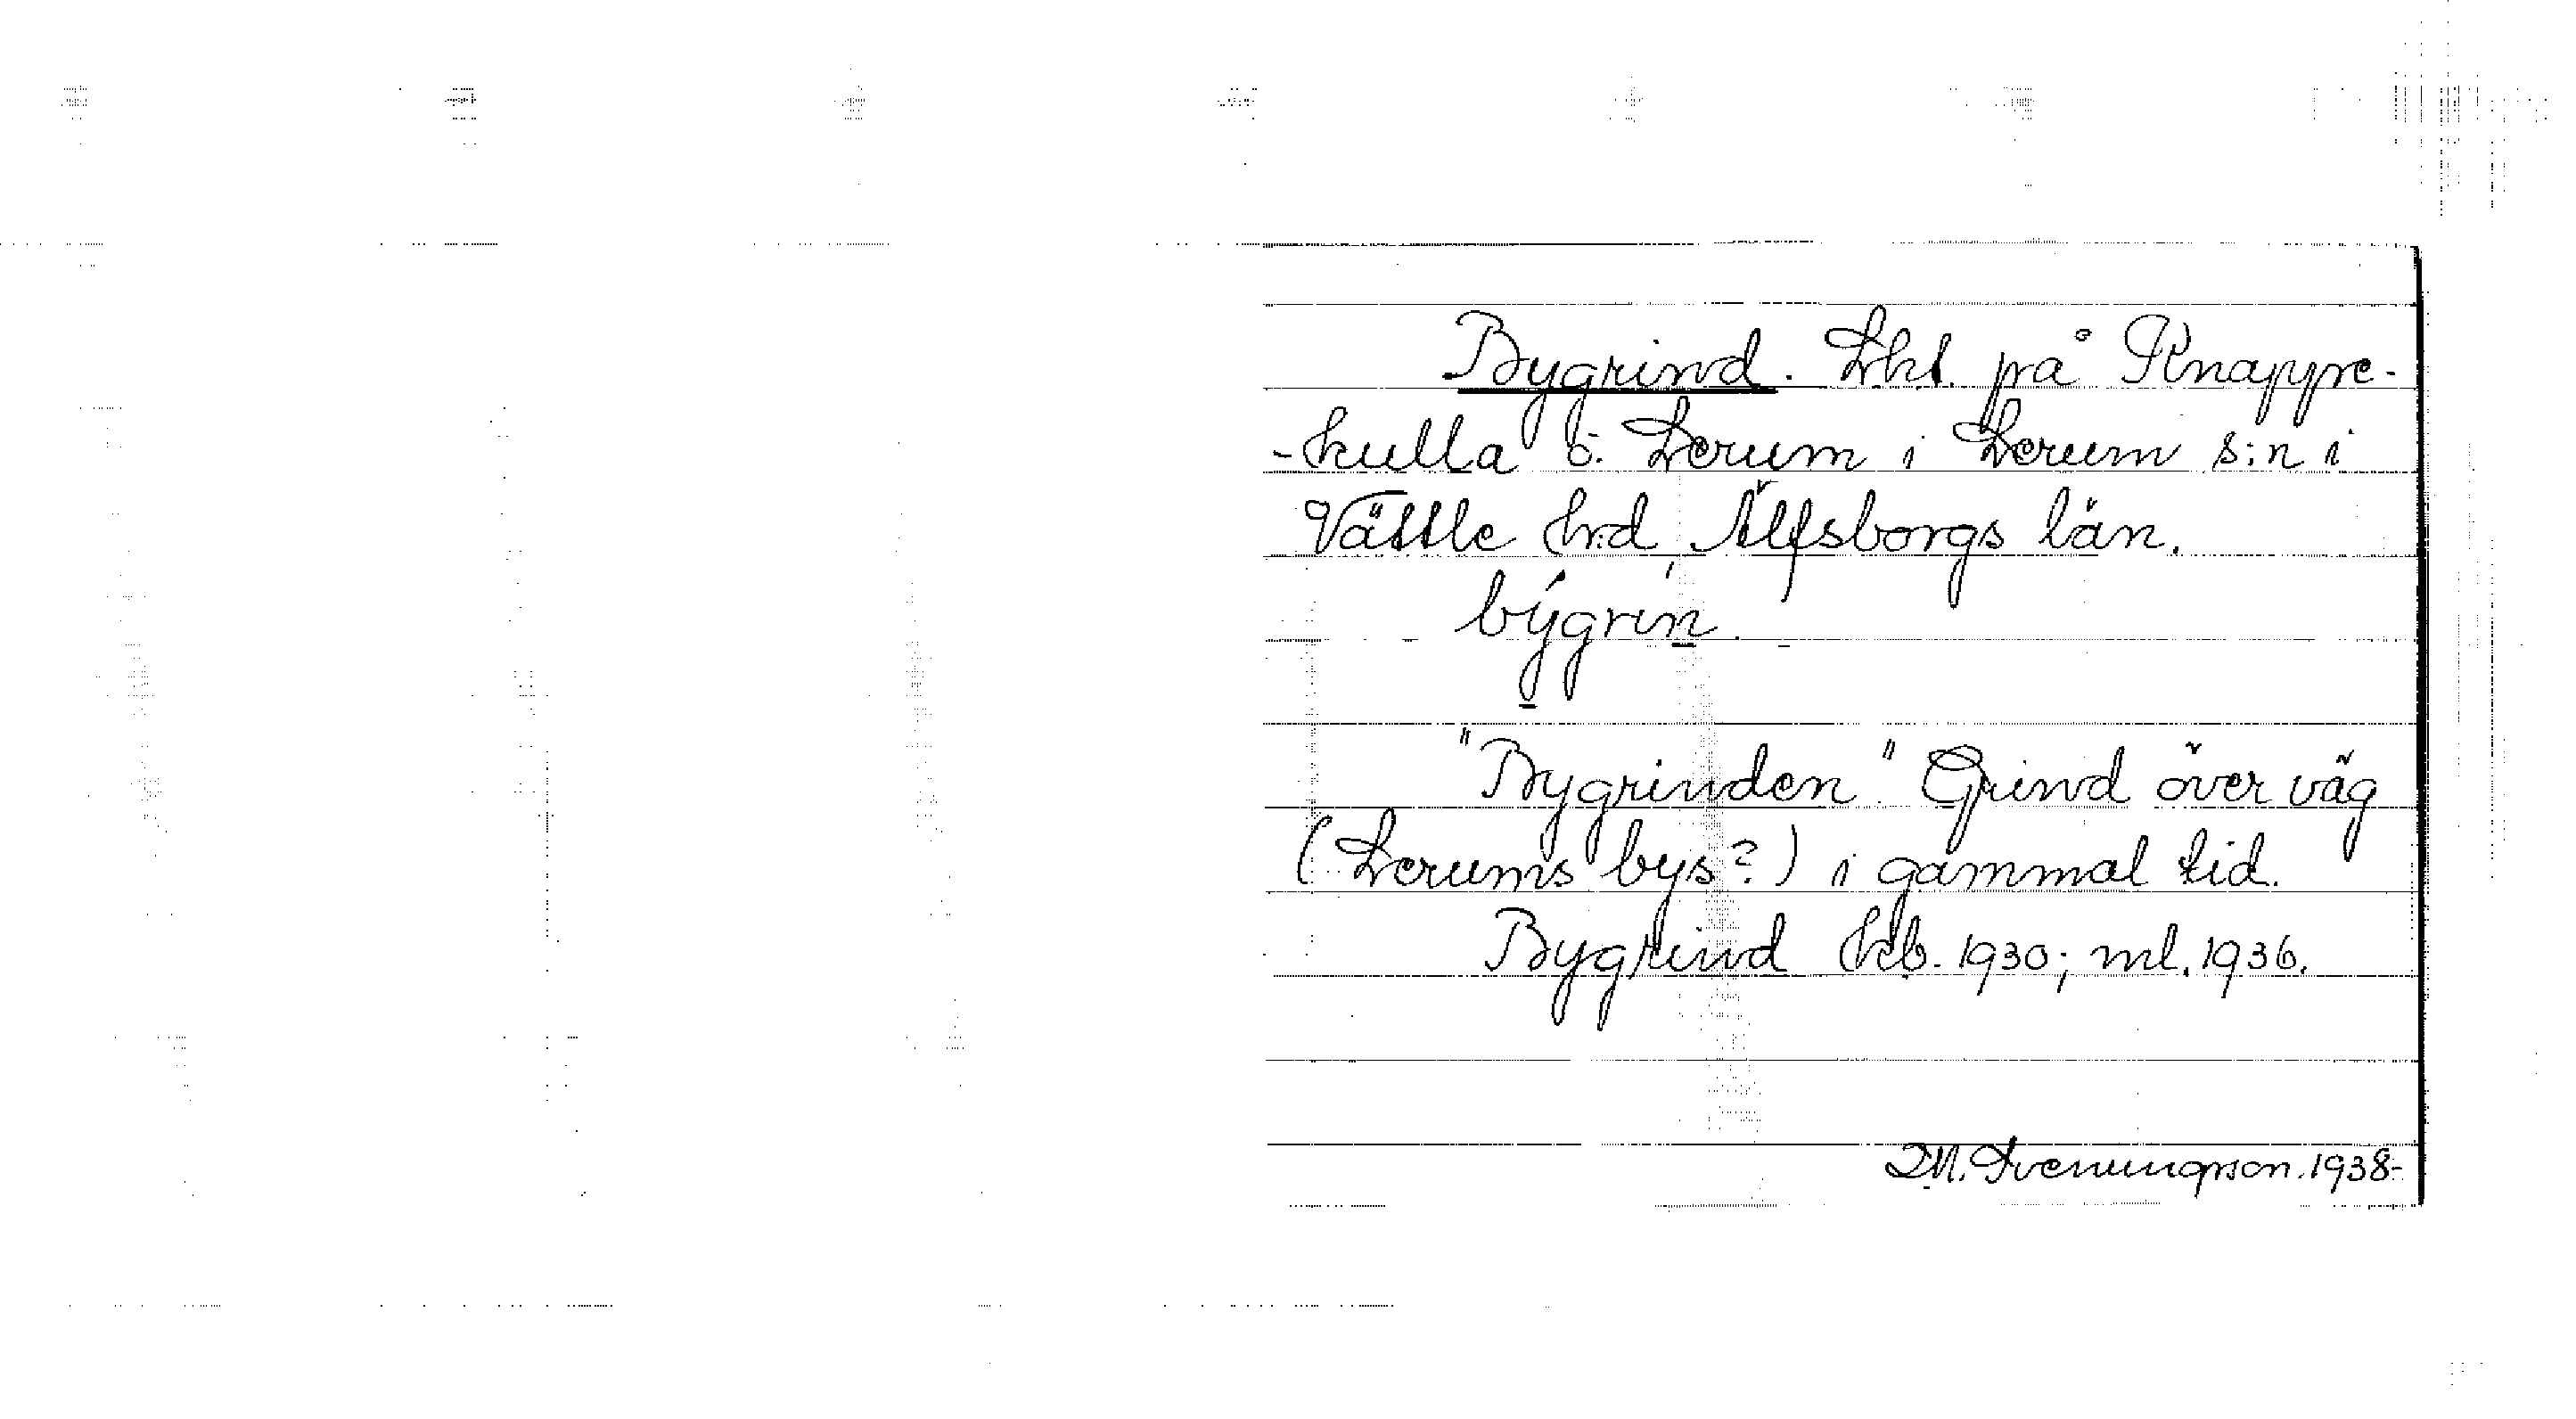 Bygrind. Lht. på Knappe-
-kulla ö. Lerum i Lerum s:n i
Vättle h:d, Älfsborgs län.
bý̱griṉ́.
"Bygrinden." Grind över väg
(Lerums bys?) i gammal tid.
Bygrind kb. 1930; ml. 1936.
D.M. Svenungsson. 1938-